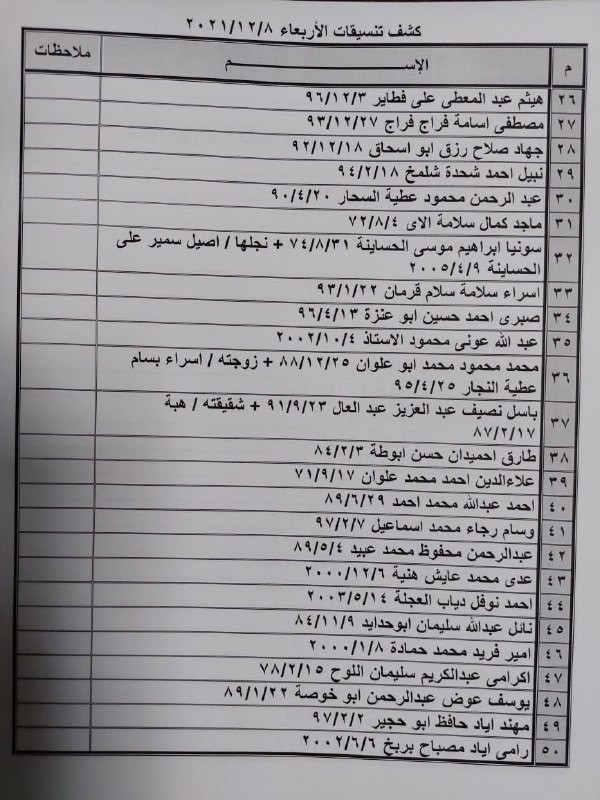 كشف تنسيقات الأربعاء ٢٠٢١/١٢/٨
م الإســـم ملاحظات
٢٦ هيثم عبد المعطى على فطاير ٩٦/١٢/٣
٢٧ مصطفى اسامة فراج فراج ٩٣/١٢/٢٧
٢٨ جهاد صلاح رزق ابو اسحاق ٩٢/١٢/١٨
٢٩ نبيل احمد شحدة شلمخ ٩٤/٢/١٨
٣٠ عبد الرحمن محمود عطية السحار ٩٠/٤/٢٠
٣١ ماجد كمال سلامة الاى ٧٢/٨/٤
٣٢ سونيا ابراهيم موسى الحساينة ٧٤/٨/٣١ + نجلها / اصيل سمير على
الحساينة ٢٠٠٥/٤/٩
٣٣ اسراء سلامة سلام قرمان ٩٣/١/٢٢
٣٤ صبرى احمد حسين ابو عنزة ٩٦/٤/١٣
٣٥ عبد الله عونى محمود الاستاذ ٢٠٠٢/١٠/٤
٣٦ محمد محمود محمد ابو علوان ٨٨/١٢/٢٥ + زوجته / اسراء بسام
عطية النجار ٩٥/٤/٢٥
٣٧ باسل نصيف عبد العزيز عبد العال ٩١/٩/٢٣ + شقيقته / هبة
٨٧/٢/١٧
٣٨ طارق احميدان حسن ابوطة ٨٤/٢/٣
٣٩ علاءالدين احمد محمد علوان ٧١/٩/١٧
٤٠ احمد عبدالله محمد احمد ٨٩/٦/٢٩
٤١ وسام رجاء محمد اسماعيل ٩٧/٢/٧
٤٢ عبدالرحمن محفوظ محمد عبيد ٨٩/٥/٤
٤٣ عدى محمد عايش هنية ٢٠٠٠/١٢/٦
٤٤ احمد نوفل دياب العجلة ٢٠٠٣/٥/١٤
٤٥ نائل عبدالله سليمان ابوحدايد ٨٤/١١/٩
٤٦ امير فريد محمد حمادة ٢٠٠٠/١/٨
٤٧ اكرامى عبدالكريم سليمان اللوح ٧٨/٢/١٥
٤٨ يوسف عوض عبدالرحمن ابو خوصة ٨٩/١/٢٢
٤٩ مهند اياد حافظ ابو حجير ٩٧/٢/٢
٥٠ رامى اياد مصباح بربخ ٢٠٠٢/٦/٦